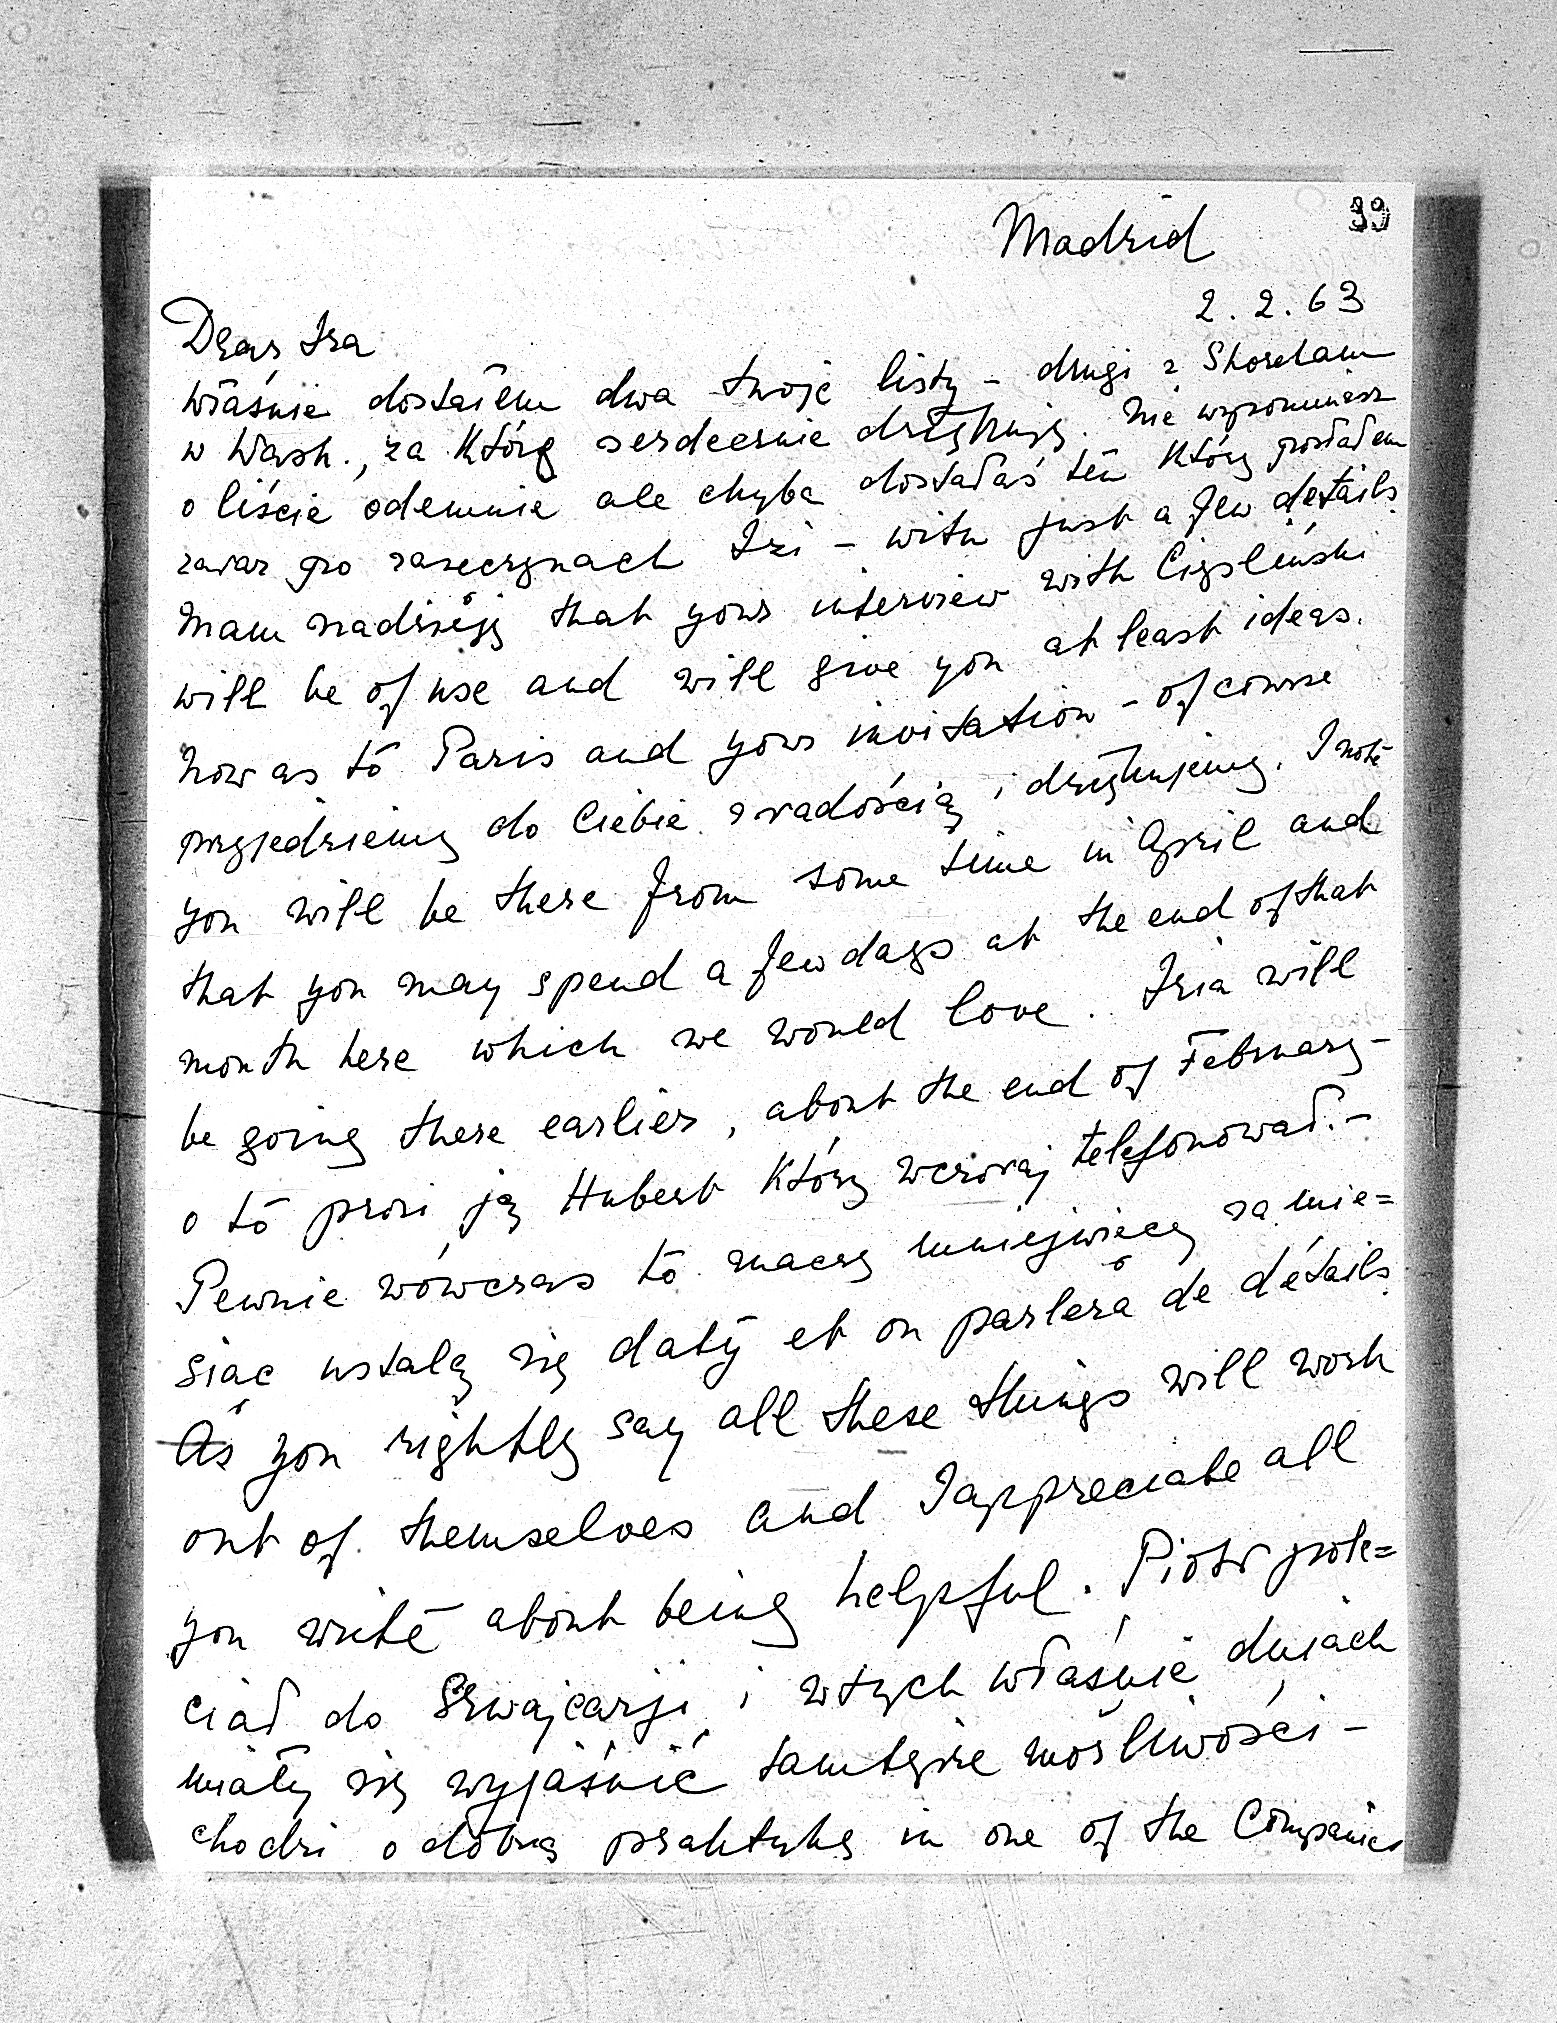 39
Madrid
2.2.63
Dear Isa
właśnie dostałem dwa twoje listy – drugi z Shoreham
w Wash., za które serdecznie dziękuję. Nie wspominasz
o liście odemnie ale chyba dostałaś ten który posłałem
zaraz po zaręczynach Izi – with just a few details.
Mam nadzieję that your interview with Ciepliński
will be of use and will give you at least ideas.
Now as to Paris and your invitation – of course
przyjedziemy do Ciebie z radością i dziękujemy. I note
you will be there from some time in April and
that you may spend a few days at the end of that
month here which we would love. Izia will
be going there earlier, about the end of February –
o to prosi ją Hubert który wczoraj telefonował. –
Pewnie wówczas to znaczy mniejwięcej za mie=
siąc ustalą się daty et on parlera de détails.
As you rightly say all these things will work
out of themselves and I appreciate all
you write about being helpful. Piotr pole=
ciał do Szwajcarji i w tych właśnie dniach
miały się wyjaśnić tamtejsze możliwości –
chodzi o dobrą praktykę in one of the Companies